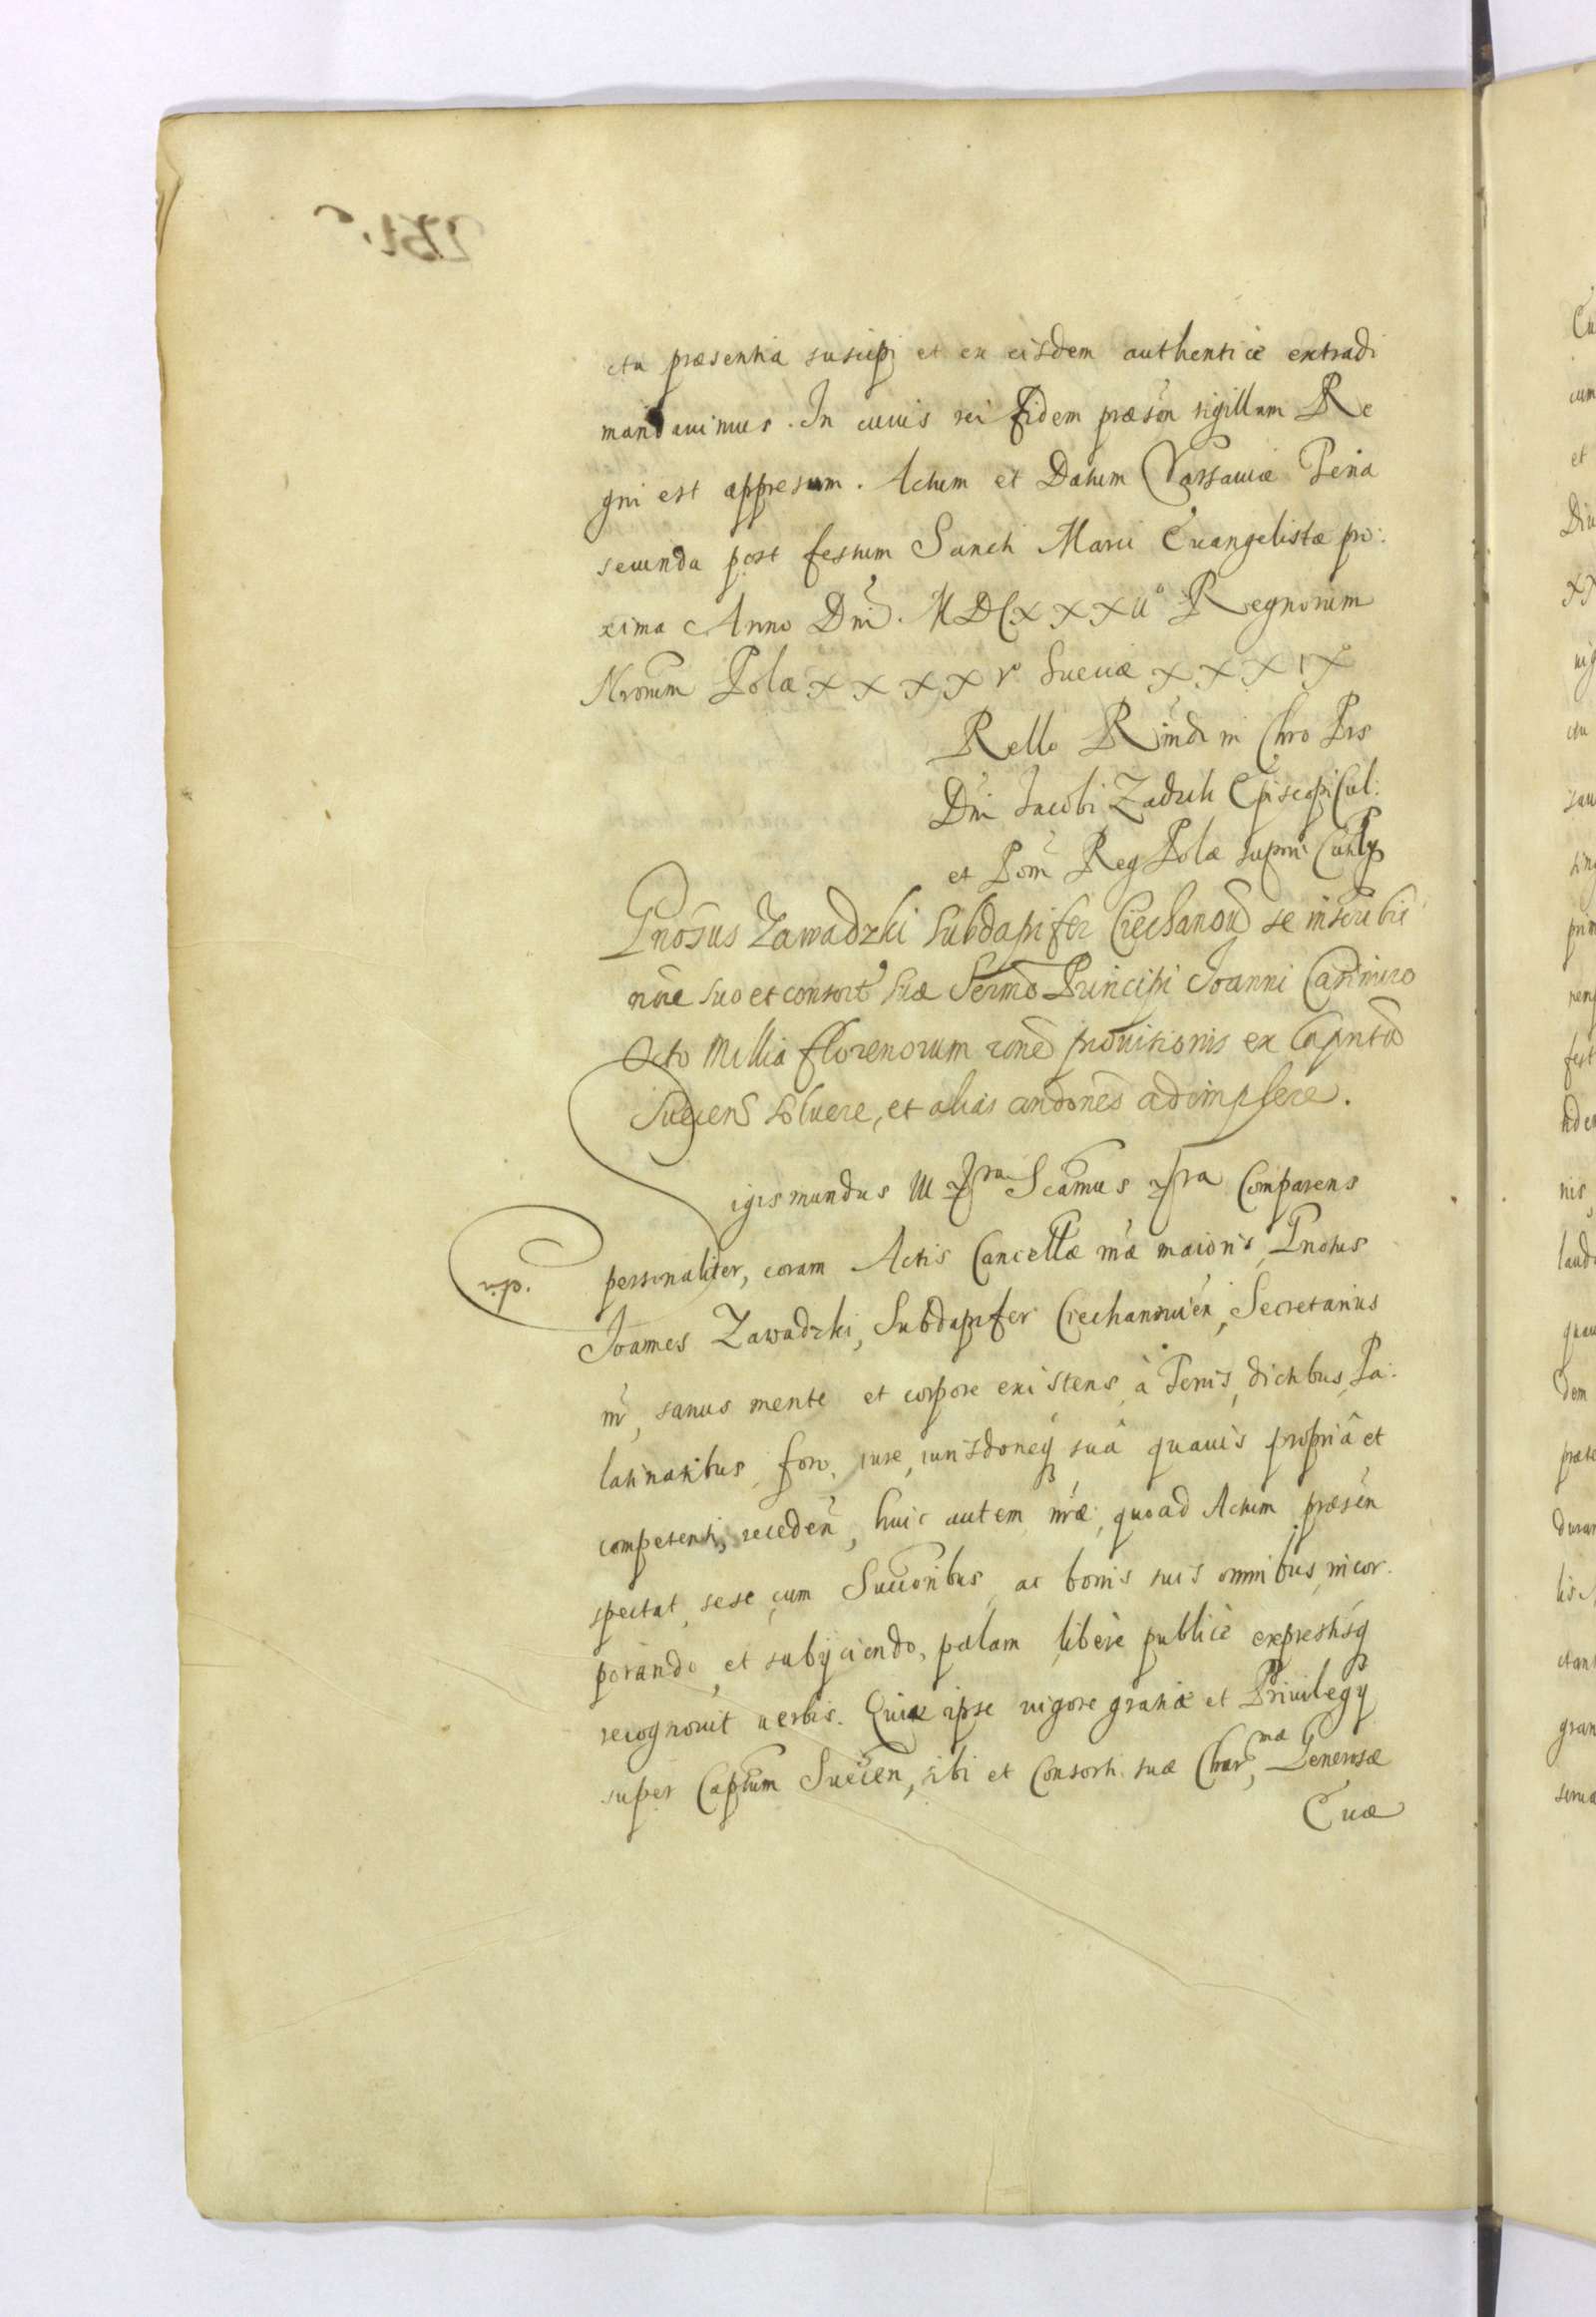 cta præsentia suscipi et ex eisdem authenticè extradi
mandauimus. In cuius rei fidem præsẽn sigillum Re
gni est appressum. Actum et Datum Varsauiæ Feria
secunda post festum Sancti Marci Euangelistæ pro:
xima Anno Dni. MDCXXXIIº Regnorum
Nrorum Polæ XXXXVº Sueciæ XXXIX
Rello Rmdi in Chro Pris
Dni Jacobi Zadzik Episcopi Cul:
et Pom Reg Polæ supmi Canly
Gnosus Zawadzki Subdapifer Ciechanou se inscribit
noie suo et consort suæ Sermo Principi Joanni Casimiro
Octo Millia florenorum rone prouisionis ex Capntu
Suecen soluere, et alias condnes adimplere.
Sigismundus III Gra Scamus Gra Comparens
personaliter, coram Actis Cancellæ mæ maioris, Gnosus
Joannes Zawadzki, Subdapifer Ciechanouien, Secretarius
nr, sanus mente et corpore existens, à Terris, districtibus, Pa:
latinatibus, foro, iure, iurisdoneq suâ quauis propriâ et
competenti, receden, huic autem nræ, quoad Actum præsen
spectat, sese cum Succoribus, ac bonis suis omnibus, incor:
porando, et subijciendo, palam liberè publicè expressisq
recognouit verbis. Quia ipse uigore gratiæ et Priuilegy
super Captum Suecen, sibi et Consorti suæ Charmæ, Generosæ
Euæ